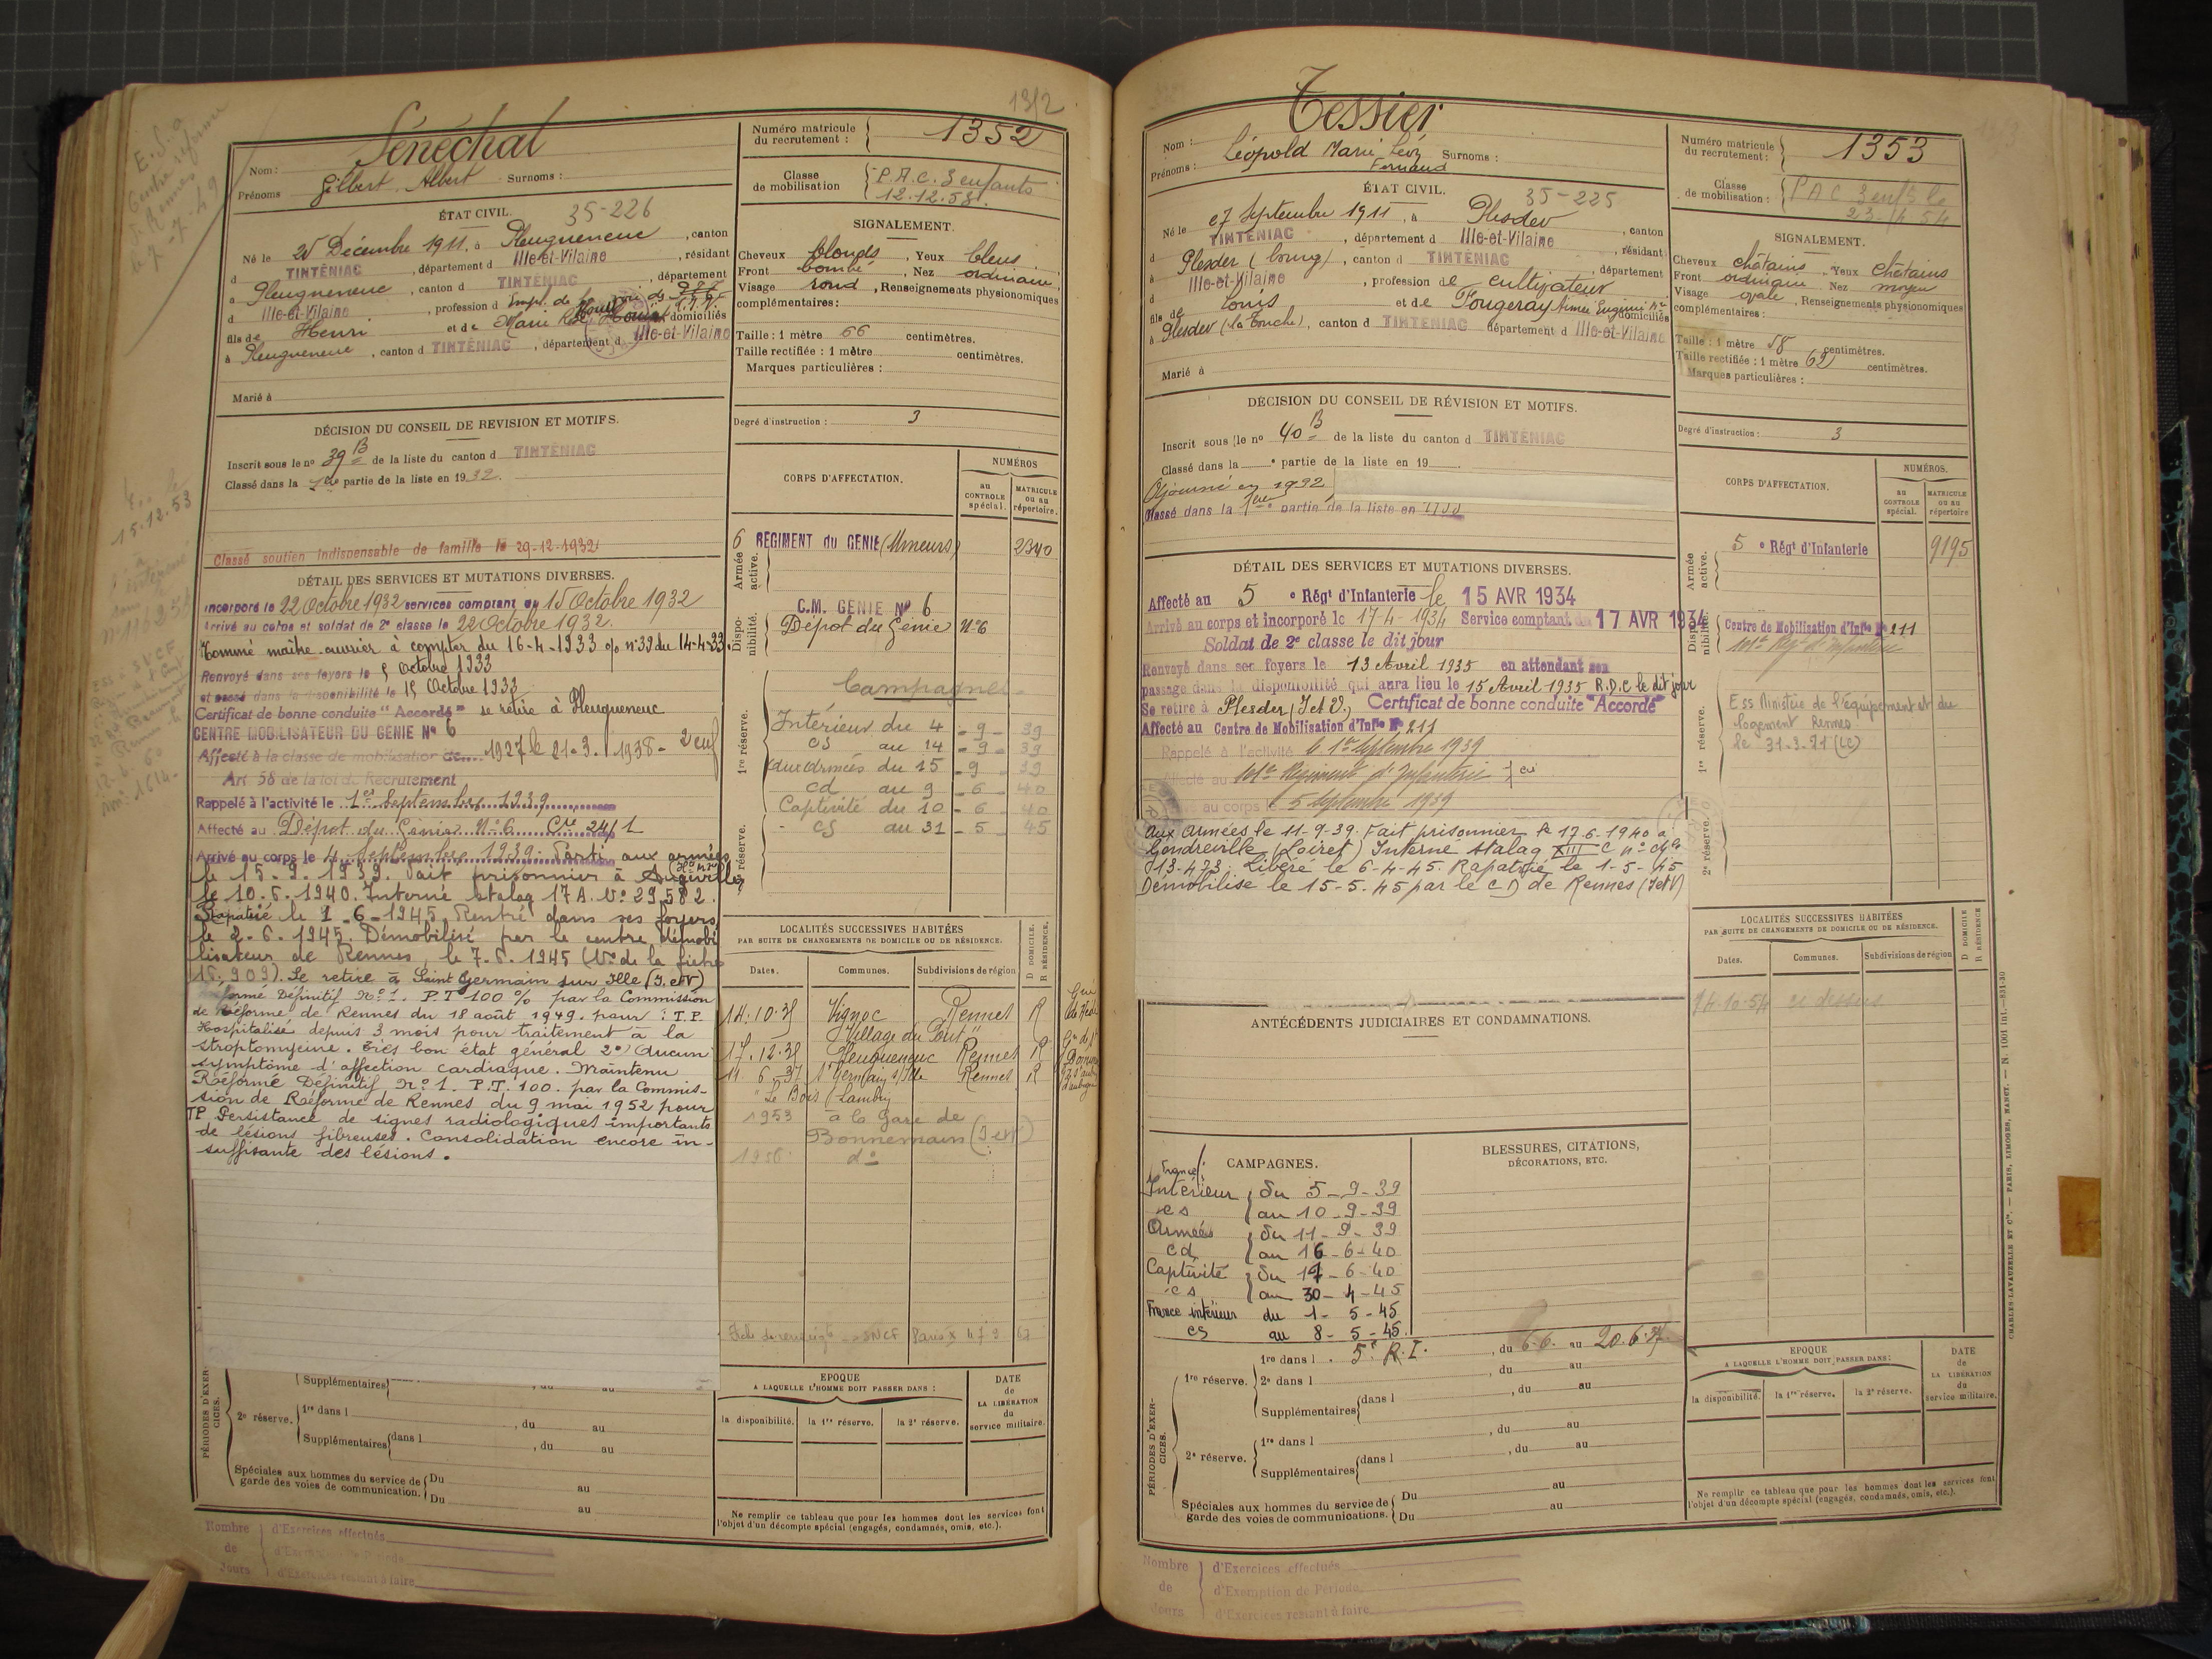 1352
E.S.a
Rennes
le 7-7-49
15.12.53
Sénéchal
Nom :
Prénoms Gilbert Albert Surnoms :
Numéro matricule
du recrutement : 1352
Classe
de mobilisation P.A.C. 3 enfants
12.12.58.
ÉTAT CIVIL. 35-226
Né le 25 Décembre 1911, à Pleugueneuc, canton
d TINTÉNIAC, département d Ille-et-Vilaine, résidant
à Pleugueneuc, canton d TINTÉNIAC, département
d Ille-et-Vilaine, profession d Empl. de
fils de Henri et de Marie domiciliés
à Pleugueneuc, canton d TINTÉNIAC, département d Ille-et-Vilaine
Marié à
SIGNALEMENT.
Cheveux blonds, Yeux bleus
Front bombé, Nez ordinaire
Visage rond, Renseignements physionomiques
complémentaires :
Taille : 1 mètre 66 centimètres.
Taille rectifiée : 1 mètre centimètres.
Marques particulières :
Degré d'instruction : 3
DÉCISION DU CONSEIL DE REVISION ET MOTIFS.
Inscrit sous le n° 39 B de la liste du canton d TINTÉNIAC
Classé dans la 1re partie de la liste en 1932.
Classé soutien indispensable de famille le 29-12-1932
DÉTAIL DES SERVICES ET MUTATIONS DIVERSES.
Incorporé le 22 Octobre 1932 services comptant du 15 Octobre 1932
Arrivé au corps et soldat de 2e classe le 22 Octobre 1932.
Nommé maître ouvrier à compter du 16-4-1933 o/o n° 39 du 14-4-33.
Renvoyé dans ses foyers le 5 Octobre 1933
et passé dans la disponibilité le 15 Octobre 1933
Certificat de bonne conduite "Accordé" se retire à Pleugueneuc
CENTRE MOBILISATEUR DU GENIE N° 6
Affecté à la classe de mobilisation de 1927 le 21-3-1938 - 2 enf
Art 58 de la loi de Recrutement
Rappelé à l'activité le 1er Septembre 1939
Affecté au Dépot du Génie N° 6 Cie 24/1
Arrivé au corps le 4 Septembre 1939. Parti aux armées
le 15.9.1939. Fait prisonnier à Angiville
le 10.6.1940. Interné stalag 17A. N° 29.582.
Rapatrié le 1-6-1945. Rentré dans ses foyers
le 2-6-1945. Démobilisé par le centre démobi
lisateur de Rennes, le 7.6.1945 (N° de la fiche
16.909). Se retire à Saint Germain sur Ille (I.etV)
Réformé Définitif N°1. P.T 100 % par la Commission
de Réforme de Rennes du 18 août 1949. pour : T.P.
Hospitalisé depuis 3 mois pour traitement à la
streptomycine. Très bon état général 2°) Aucun
symptôme d'affection cardiaque. Maintenu
Réformé Définitif N°1. P.T. 100. par la Commis-
sion de Réforme de Rennes du 9 mai 1952 pour
TP Persistance de signes radiologiques importants
de lésions fibreuses. Consolidation encore in-
suffisante des lésions.
CORPS D'AFFECTATION.
NUMÉROS
au CONTROLE spécial.
MATRICULE ou au répertoire.
Armée active.
6 REGIMENT du GENIE (Mineurs) 2340
Disponibilité.
C.M. GENIE N° 6
Dépot du Génie N°6
1re réserve.
Campagnes
Intérieur du 4 - 9 - 39
CS au 14 - 9 - 39
aux armées du 15 - 9 - 39
Cd au 9 - 6 - 40
Captivité du 10 - 6 - 40
- CS au 31 - 5 - 45
2e réserve.
LOCALITÉS SUCCESSIVES HABITÉES
PAR SUITE DE CHANGEMENTS DE DOMICILE OU DE RÉSIDENCE.
D DOMICILE. R RÉSIDENCE.
Dates. Communes. Subdivisions de région
14.10.35 Vignoc Rennes R
"Village du Pont"
17.12.35 Pleugueneuc Rennes R
11.6.37 St Germain s/Ille Rennes R
"Le Bois Lambin
1953 à la Gare de
Bonnemain (I et V)
1956 d°
SNCF Paris
PÉRIODES D'EXERCICES.
Supplémentaires
2e réserve. 1re dans l , du au
Supplémentaires dans l , du au
Spéciales aux hommes du service de Du au
garde des voies de communication. Du au
EPOQUE
A LAQUELLE L'HOMME DOIT PASSER DANS :
la disponibilité. la 1re réserve. la 2e réserve.
DATE de LA LIBÉRATION du service militaire.
Ne remplir ce tableau que pour les hommes dont les services font
l'objet d'un décompte spécial (engagés, condamnés, omis, etc.).
Nombre d'Exercices effectués
de d'Exemption de Période
Jours d'Exercices restant à faire
Tessier
Nom :
Prénoms : Léopold Marie Léon Surnoms :
Fernand
Numéro matricule
du recrutement : 1353
Classe
de mobilisation : P A C 3 enfts le
ÉTAT CIVIL. 35-225
Né le 27 Septembre 1911, à Plesder, canton
d TINTÉNIAC, département d Ille-et-Vilaine, résidant
à Plesder (bourg), canton d TINTÉNIAC, département
d Ille-et-Vilaine, profession de cultivateur
fils de Louis et de Fougeray Aimée Eugénie Mie domiciliés
à Plesder (la Touche), canton d TINTÉNIAC département d Ille-et-Vilaine
Marié à
SIGNALEMENT.
Cheveux châtains, Yeux châtains
Front ordinaire Nez moyen
Visage ovale, Renseignements physionomiques
complémentaires :
Taille : 1 mètre 58 centimètres.
Taille rectifiée : 1 mètre 62 centimètres.
Marques particulières :
Degré d'instruction : 3
DÉCISION DU CONSEIL DE RÉVISION ET MOTIFS.
Inscrit sous le n° 40 B de la liste du canton d TINTÉNIAC
Classé dans la e partie de la liste en 19
Ajourné en 1932
Classé dans la 1ère partie de la liste en 1933
DÉTAIL DES SERVICES ET MUTATIONS DIVERSES.
Affecté au 5 e Régt d'Infanterie le 15 AVR 1934
Arrivé au corps et incorporé le 17-4-1934 Service comptant du 17 AVR 1934
Soldat de 2e classe le dit jour
Renvoyé dans ses foyers le 13 Avril 1935 en attendant son
passage dans la disponibilité qui aura lieu le 15 Avril 1935 R.D.C le dit jour
Se retire à Plesder (I et V.) Certificat de bonne conduite "Accordé"
Affecté au Centre de Mobilisation d'Infie N° 211
Rappelé à l'activité le 1er Septembre 1939
Affecté au Régiment d'Infanterie
Arrivé au corps le 5 Septembre 1939
aux armées le 11-9-39. Fait prisonnier le 17.6.1940 à
Gondreville (Loiret) Interné stalag XIII C n° Mle
13.473. Libéré le 6-4-45. Rapatrié le 1-5-45
Démobilisé le 15-5.45 par le CD de Rennes (IetV)
CORPS D'AFFECTATION.
NUMÉROS.
au CONTROLE spécial.
MATRICULE ou au répertoire
Armée active.
5 e Régt d'Infanterie 9195
Disponibilité.
Centre de Mobilisation d'Infie N° 211
Régt d'Infanterie
1re réserve.
Ess Ministère de l'équipement et du
logement Rennes
le 31-3-71 (LC)
2e réserve.
LOCALITÉS SUCCESSIVES HABITÉES
PAR SUITE DE CHANGEMENTS DE DOMICILE OU DE RÉSIDENCE.
D DOMICILE R RÉSIDENCE
Dates. Communes. Subdivisions de région
24.10.54 ci dessus
ANTÉCÉDENTS JUDICIAIRES ET CONDAMNATIONS.
CAMPAGNES.
France
Intérieur du 5-9-39
cs au 10-9-39
Armées du 11-9-39
cd au 16-6-40
Captivité du 17-6-40
cs au 30-4-45
France intérieur du 1-5-45
cs au 8-5-45.
BLESSURES, CITATIONS,
DÉCORATIONS, ETC.
PÉRIODES D'EXERCICES.
1re réserve. 1re dans l 5e R.I. , du 6.6. au 20.6.37
2e dans l , du au
Supplémentaires dans l , du au
2e réserve. 1re dans l , du au
Supplémentaires dans l , du au
Spéciales aux hommes du service de Du au
garde des voies de communications. Du au
EPOQUE
A LAQUELLE L'HOMME DOIT PASSER DANS :
la disponibilité. la 1re réserve. la 2e réserve.
DATE de LA LIBÉRATION du service militaire.
Ne remplir ce tableau que pour les hommes dont les services font
l'objet d'un décompte spécial (engagés, condamnés, omis, etc.).
CHARLES-LAVAUZELLE ET Cie. — PARIS, LIMOGES, NANCY. — N. 1001 int.—831-30
Nombre d'Exercices effectués
de d'Exemption de Période
Jours d'Exercices restant à faire